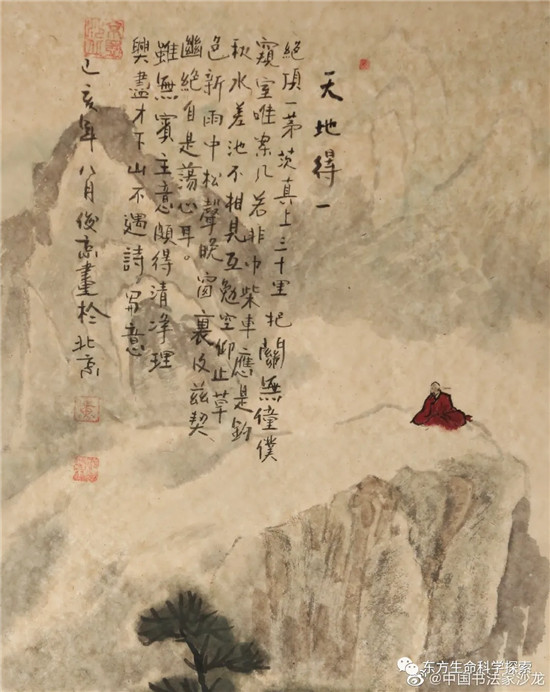 天地得一
絕頂一茅茨真上三十里把關無僮僕
窺室唯案几若非巾柴車應是釣
秋水差池不相見互勉空仰止草
色新雨中松聲晚窗裏及茲契
幽絕自是蕩心耳。
雖無賓主意頗得清淨理
興盡才下山不遇詩寫意
己亥年八月俊京畫於北京
东方生命科学探索
@中国书法家沙龙